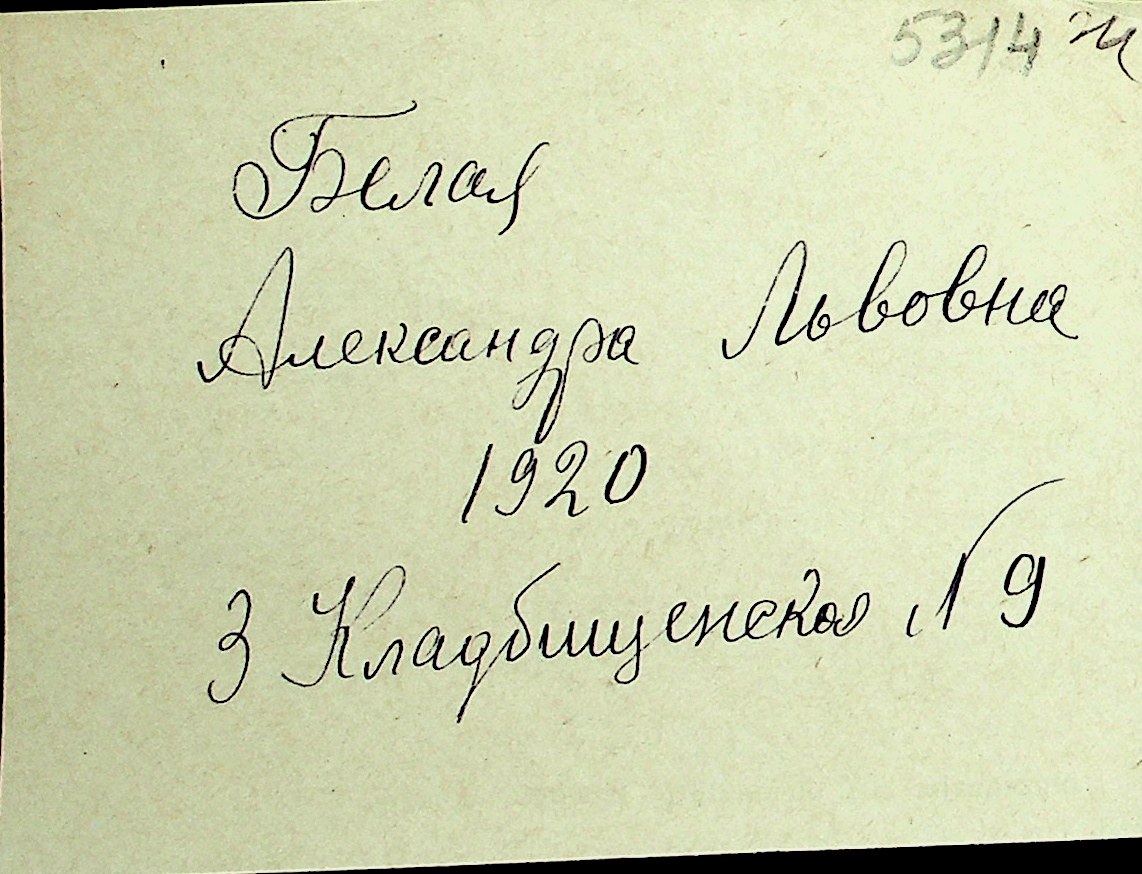 5314 ж
Белая
Александра Львовна
1920
3 Кладбищенская N 9